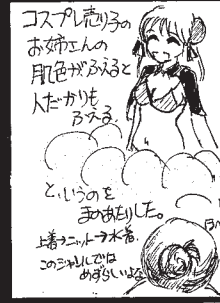 コスプレ売り子の
お姉さんの
肌色がふえると
人だかりも
ふえる。
と、いうのを
まのあたりした。
上着→ニット→水着。
このジャンルでは
めずらしいよな